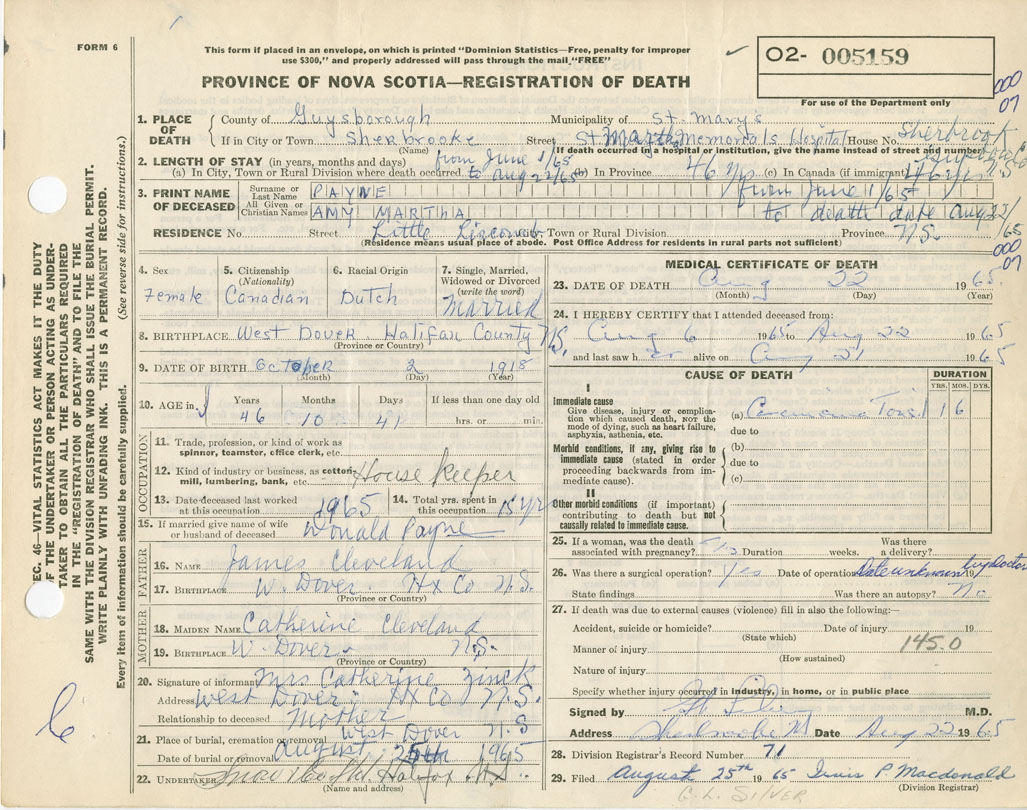 FORM 6
This form if placed in an envelope, on which is printed "Dominion Statistics—Free, penalty for improper
use $300," and properly addressed will pass through the mail "FREE"
PROVINCE OF NOVA SCOTIA—REGISTRATION OF DEATH
02- 005159
For use of the Department only
000
07
SEC. 46—VITAL STATISTICS ACT MAKES IT THE DUTY
OF THE UNDERTAKER OR PERSON ACTING AS UNDER-
TAKER TO OBTAIN ALL THE PARTICULARS REQUIRED
IN THE "REGISTRATION OF DEATH" AND TO FILE THE
SAME WITH THE DIVISION REGISTRAR WHO SHALL ISSUE THE BURIAL PERMIT.
WRITE PLAINLY WITH UNFADING INK. THIS IS A PERMANENT RECORD.
Every item of information should be carefully supplied. (See reverse side for instructions.)
1. PLACE OF DEATH
County of Guysborough Municipality of St. Mary's
If in City or Town Sherbrooke Street St Martha Memorials Hospital House No. Sherbrook
(Name) (If death occurred in a hospital or institution, give the name instead of street and number)
2. LENGTH OF STAY (in years, months and days) from June 1/65
(a) In City, Town or Rural Division where death occurred to Aug 22/65 (b) In Province 46 yrs (c) In Canada (if immigrant) 46 yrs
3. PRINT NAME OF DECEASED
Surname or Last Name PAYNE from June 1/65
All Given or Christian Names AMY MARTHA to death date Aug 22/65
RESIDENCE No. Street Little Liscomb City, Town or Rural Division Province N.S.
(Residence means usual place of abode. Post Office Address for residents in rural parts not sufficient)
000
07
4. Sex Female
5. Citizenship (Nationality) Canadian
6. Racial Origin Dutch
7. Single, Married, Widowed or Divorced (write the word) Married
8. BIRTHPLACE West Dover Halifax County N.S.
(Province or Country)
9. DATE OF BIRTH October 2 1918
(Month) (Day) (Year)
10. AGE in Years 46 Months 10 Days 21 If less than one day old hrs. or min.
OCCUPATION
11. Trade, profession, or kind of work as spinner, teamster, office clerk, etc.
12. Kind of industry or business, as cotton mill, lumbering, bank, etc. House Keeper
13. Date deceased last worked at this occupation 1965
14. Total yrs. spent in this occupation 15 yr
15. If married give name of wife or husband of deceased Donald Payne
FATHER
16. NAME James Cleveland
17. BIRTHPLACE W. Dover Hx Co N.S.
(Province or Country)
MOTHER
18. MAIDEN NAME Catherine Cleveland
19. BIRTHPLACE W. Dover N.S.
(Province or Country)
20. Signature of informant Mrs Catherine Zinck
Address West Dover Hx Co N.S.
Relationship to deceased Mother
21. Place of burial, cremation or removal West Dover N.S
Date of burial or removal August 25th 1965
22. UNDERTAKER Halifax N.S.
(Name and address)
MEDICAL CERTIFICATE OF DEATH
23. DATE OF DEATH Aug 22 1965
(Month) (Day) (Year)
24. I HEREBY CERTIFY that I attended deceased from:
Aug 6 1965 to Aug 22 1965
and last saw her alive on Aug 21 1965
CAUSE OF DEATH
DURATION
YRS. MOS. DYS.
I
Immediate cause
Give disease, injury or complication which caused death, NOT the mode of dying, such as heart failure, asphyxia, asthenia, etc.
(a) Carcinoma Tonsil 1 6
due to
Morbid conditions, if any, giving rise to immediate cause (stated in order proceeding backwards from immediate cause).
(b)
due to
(c)
II
Other morbid conditions (if important) contributing to death but not causally related to immediate cause.
25. If a woman, was the death associated with pregnancy? Duration weeks. Was there a delivery?
26. Was there a surgical operation? Yes Date of operation Date unknown by doctor 19
State findings Was there an autopsy? No
27. If death was due to external causes (violence) fill in also the following:—
Accident, suicide or homicide? Date of injury 19
(State which)
Manner of injury 145.0
(How sustained)
Nature of injury
Specify whether injury occurred in industry, in home, or in public place
Signed by M.D.
Address Sherbrooke NS Date Aug 22 1965
28. Division Registrar's Record Number 71
29. Filed August 25th 1965 Irvis P Macdonald
(Division Registrar)
C. L. SILVER